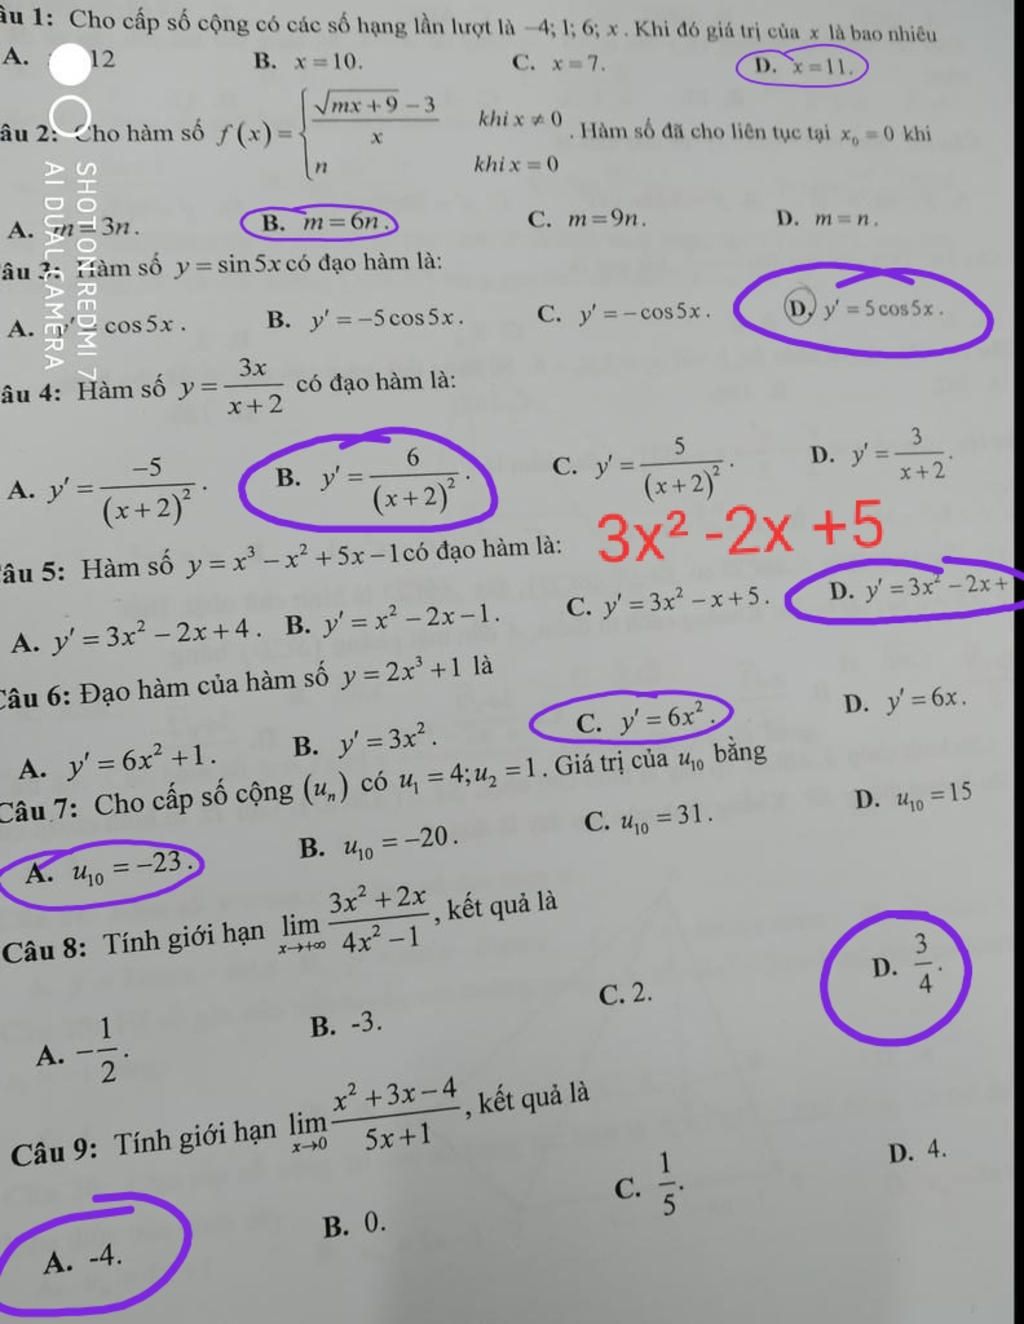 âu 1: Cho cấp số cộng có các số hạng lần lượt là −4; 1; 6; x. Khi đó giá trị của x là bao nhiêu
A. 12 B. x = 10. C. x = 7. D. x = 11.
âu 2: Cho hàm số f(x) = { (√(mx + 9) − 3)/x khi x ≠ 0 . Hàm số đã cho liên tục tại x₀ = 0 khi
n khi x = 0
A. m = 3n. B. m = 6n. C. m = 9n. D. m = n.
âu 3: Hàm số y = sin 5x có đạo hàm là:
A. y' = cos 5x. B. y' = −5 cos 5x. C. y' = − cos 5x. D. y' = 5 cos 5x.
âu 4: Hàm số y = 3x/(x + 2) có đạo hàm là:
A. y' = −5/(x + 2)². B. y' = 6/(x + 2)². C. y' = 5/(x + 2)². D. y' = 3/(x + 2).
3x² -2x +5
âu 5: Hàm số y = x³ − x² + 5x − 1 có đạo hàm là:
A. y' = 3x² − 2x + 4. B. y' = x² − 2x − 1. C. y' = 3x² − x + 5. D. y' = 3x² − 2x +
Câu 6: Đạo hàm của hàm số y = 2x³ + 1 là
A. y' = 6x² + 1. B. y' = 3x². C. y' = 6x². D. y' = 6x.
Câu 7: Cho cấp số cộng (uₙ) có u₁ = 4; u₂ = 1. Giá trị của u₁₀ bằng
A. u₁₀ = −23. B. u₁₀ = −20. C. u₁₀ = 31. D. u₁₀ = 15
Câu 8: Tính giới hạn lim x→+∞ (3x² + 2x)/(4x² − 1), kết quả là
A. −1/2. B. -3. C. 2. D. 3/4.
Câu 9: Tính giới hạn lim x→0 (x² + 3x − 4)/(5x + 1), kết quả là
A. -4. B. 0. C. 1/5. D. 4.
SHOT ON REDMI 7
AI DUAL CAMERA